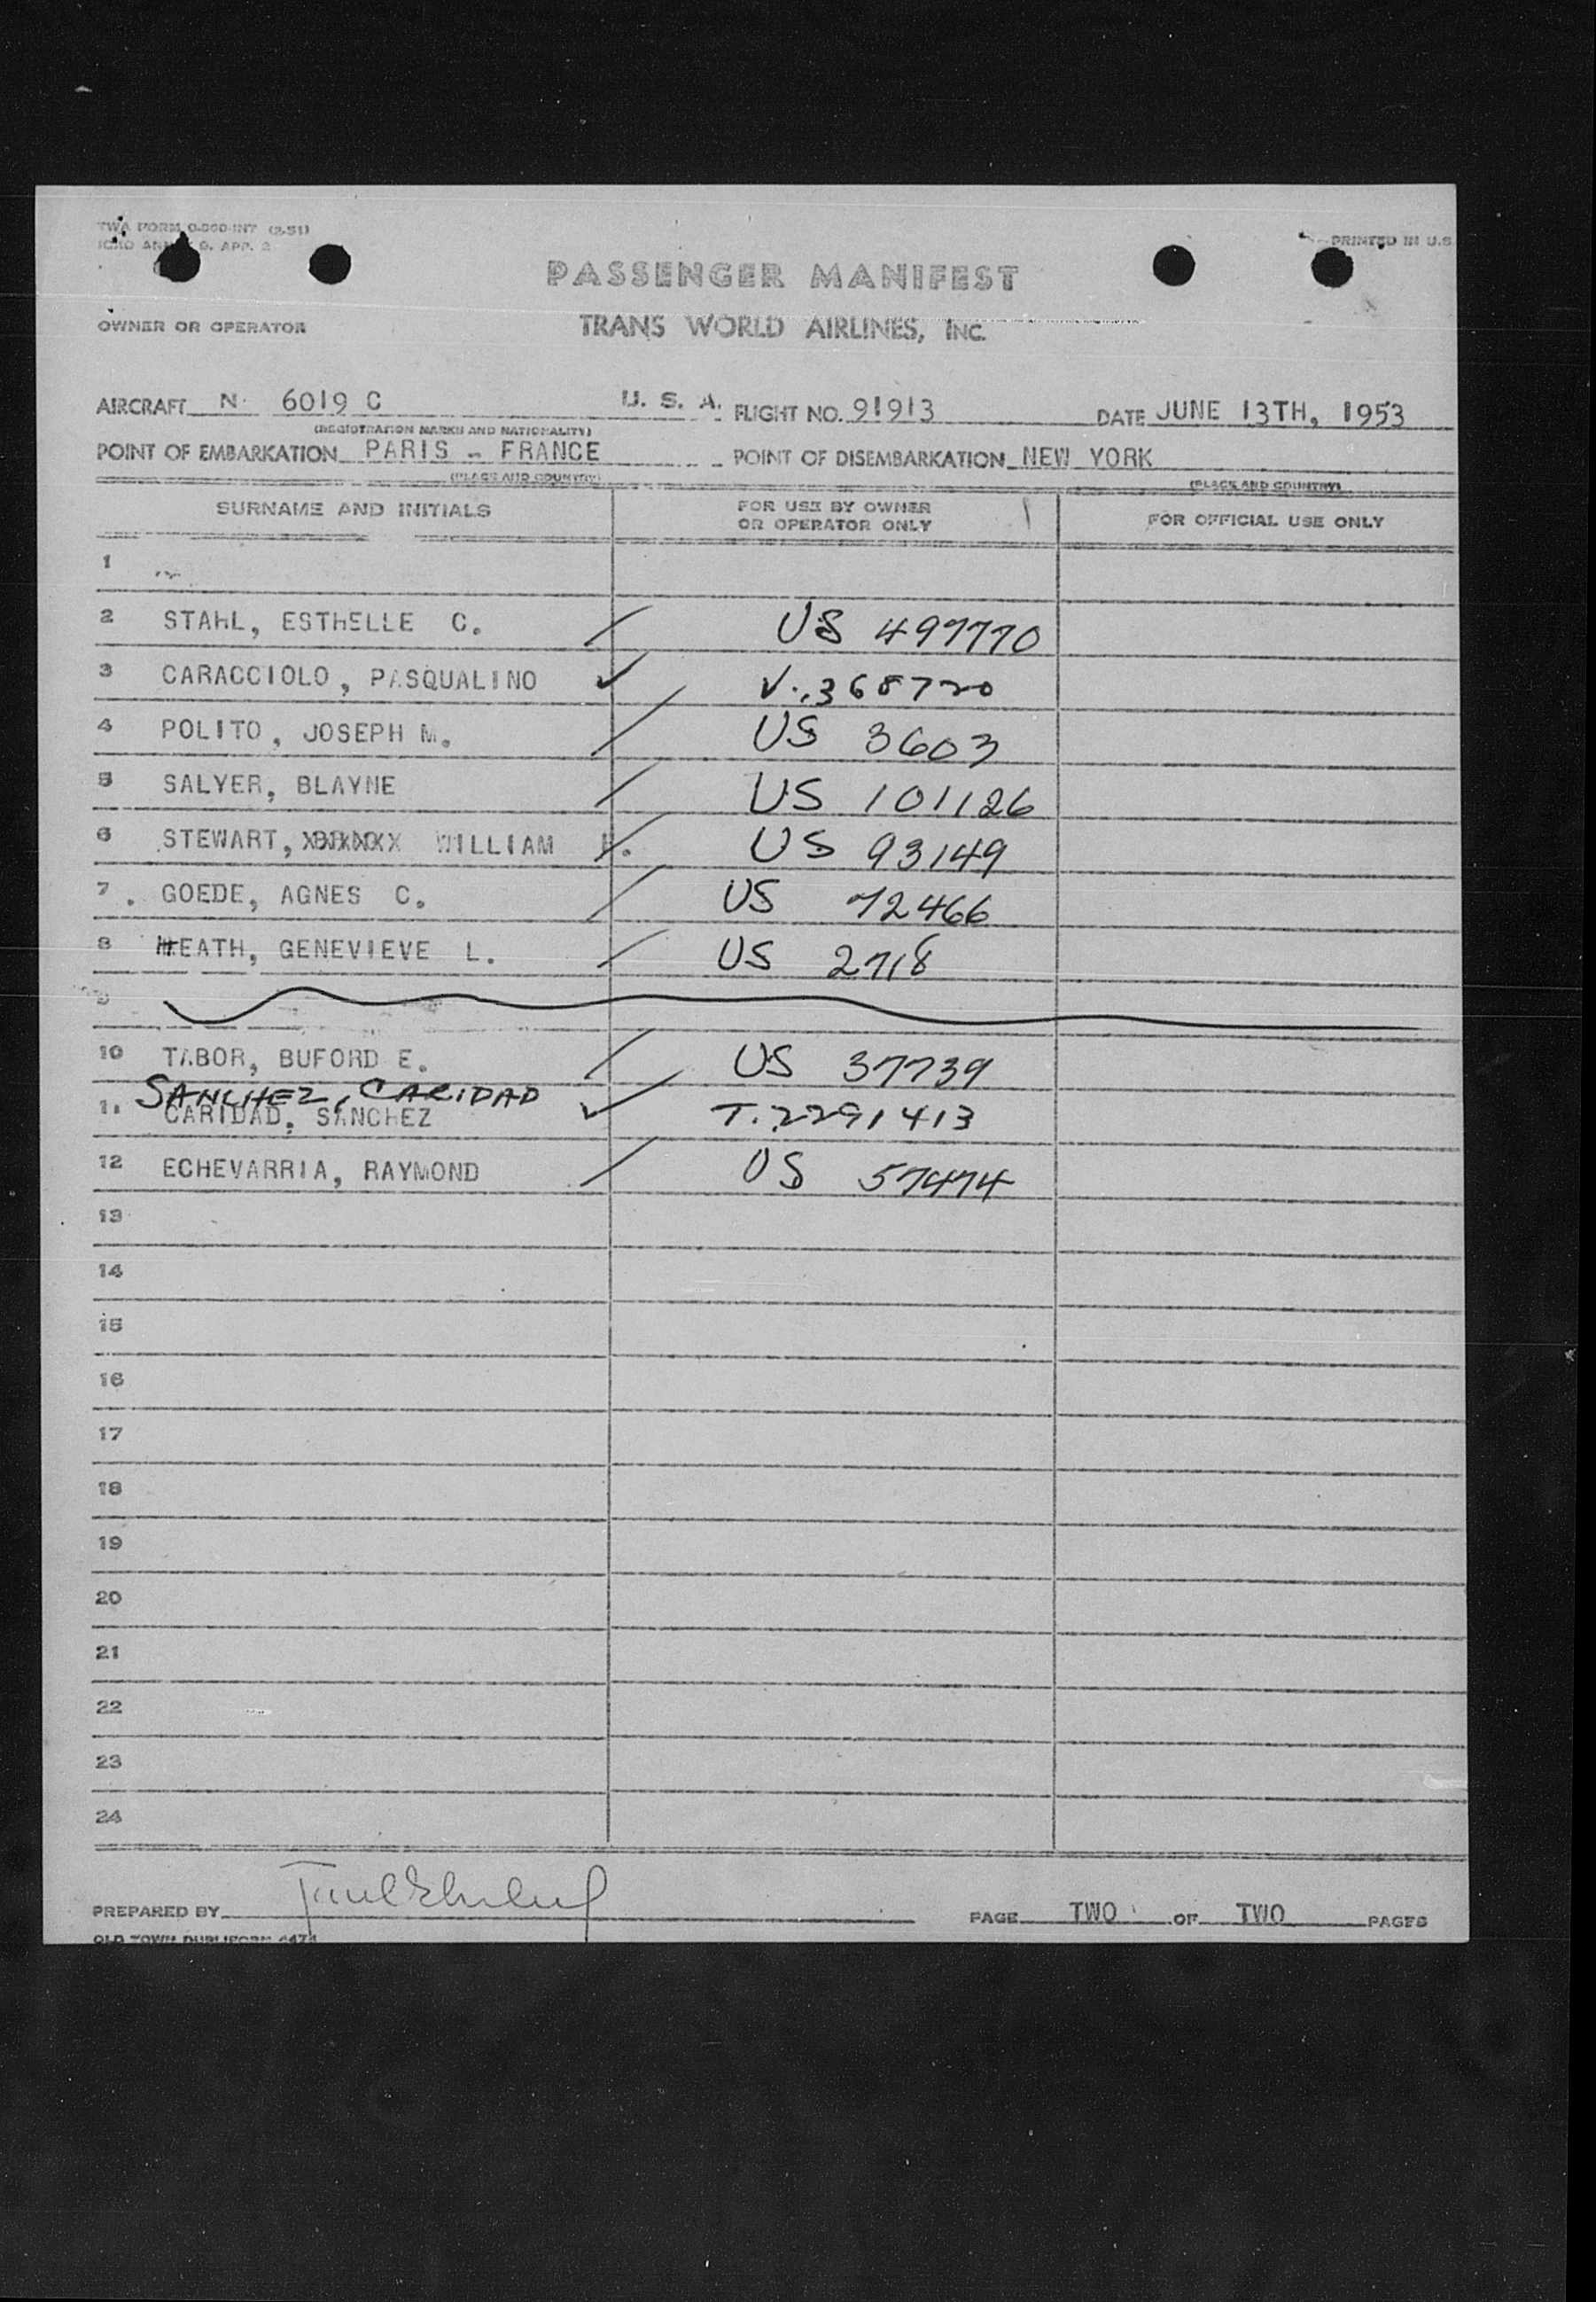 TWA FORM 0-060-INT (2-51)
ICAO ANNEX 9, APP. 2
PRINTED IN U.S.
PASSENGER MANIFEST
OWNER OR OPERATOR TRANS WORLD AIRLINES, INC.
AIRCRAFT N 6019 C U. S. A. FLIGHT NO. 91913 DATE JUNE 13TH, 1953
(REGISTRATION MARKS AND NATIONALITY)
POINT OF EMBARKATION PARIS - FRANCE POINT OF DISEMBARKATION NEW YORK
(PLACE AND COUNTRY) (PLACE AND COUNTRY)
SURNAME AND INITIALS FOR USE BY OWNER OR OPERATOR ONLY FOR OFFICIAL USE ONLY
1
2 STAHL, ESTHELLE C. US 497770
3 CARACCIOLO, PASQUALINO V. 368720
4 POLITO, JOSEPH M. US 3603
5 SALYER, BLAYNE US 101126
6 STEWART, WILLIAM H. US 93149
7 GOEDE, AGNES C. US 72466
8 HEATH, GENEVIEVE L. US 2718
9
10 TABOR, BUFORD E. US 37739
SANCHEZ, CARIDAD
11 CARIDAD, SANCHEZ T. 2291413
12 ECHEVARRIA, RAYMOND US 57474
13
14
15
16
17
18
19
20
21
22
23
24
PREPARED BY PAGE TWO OF TWO PAGES
OLD TOWN DUPLIFORM 4474